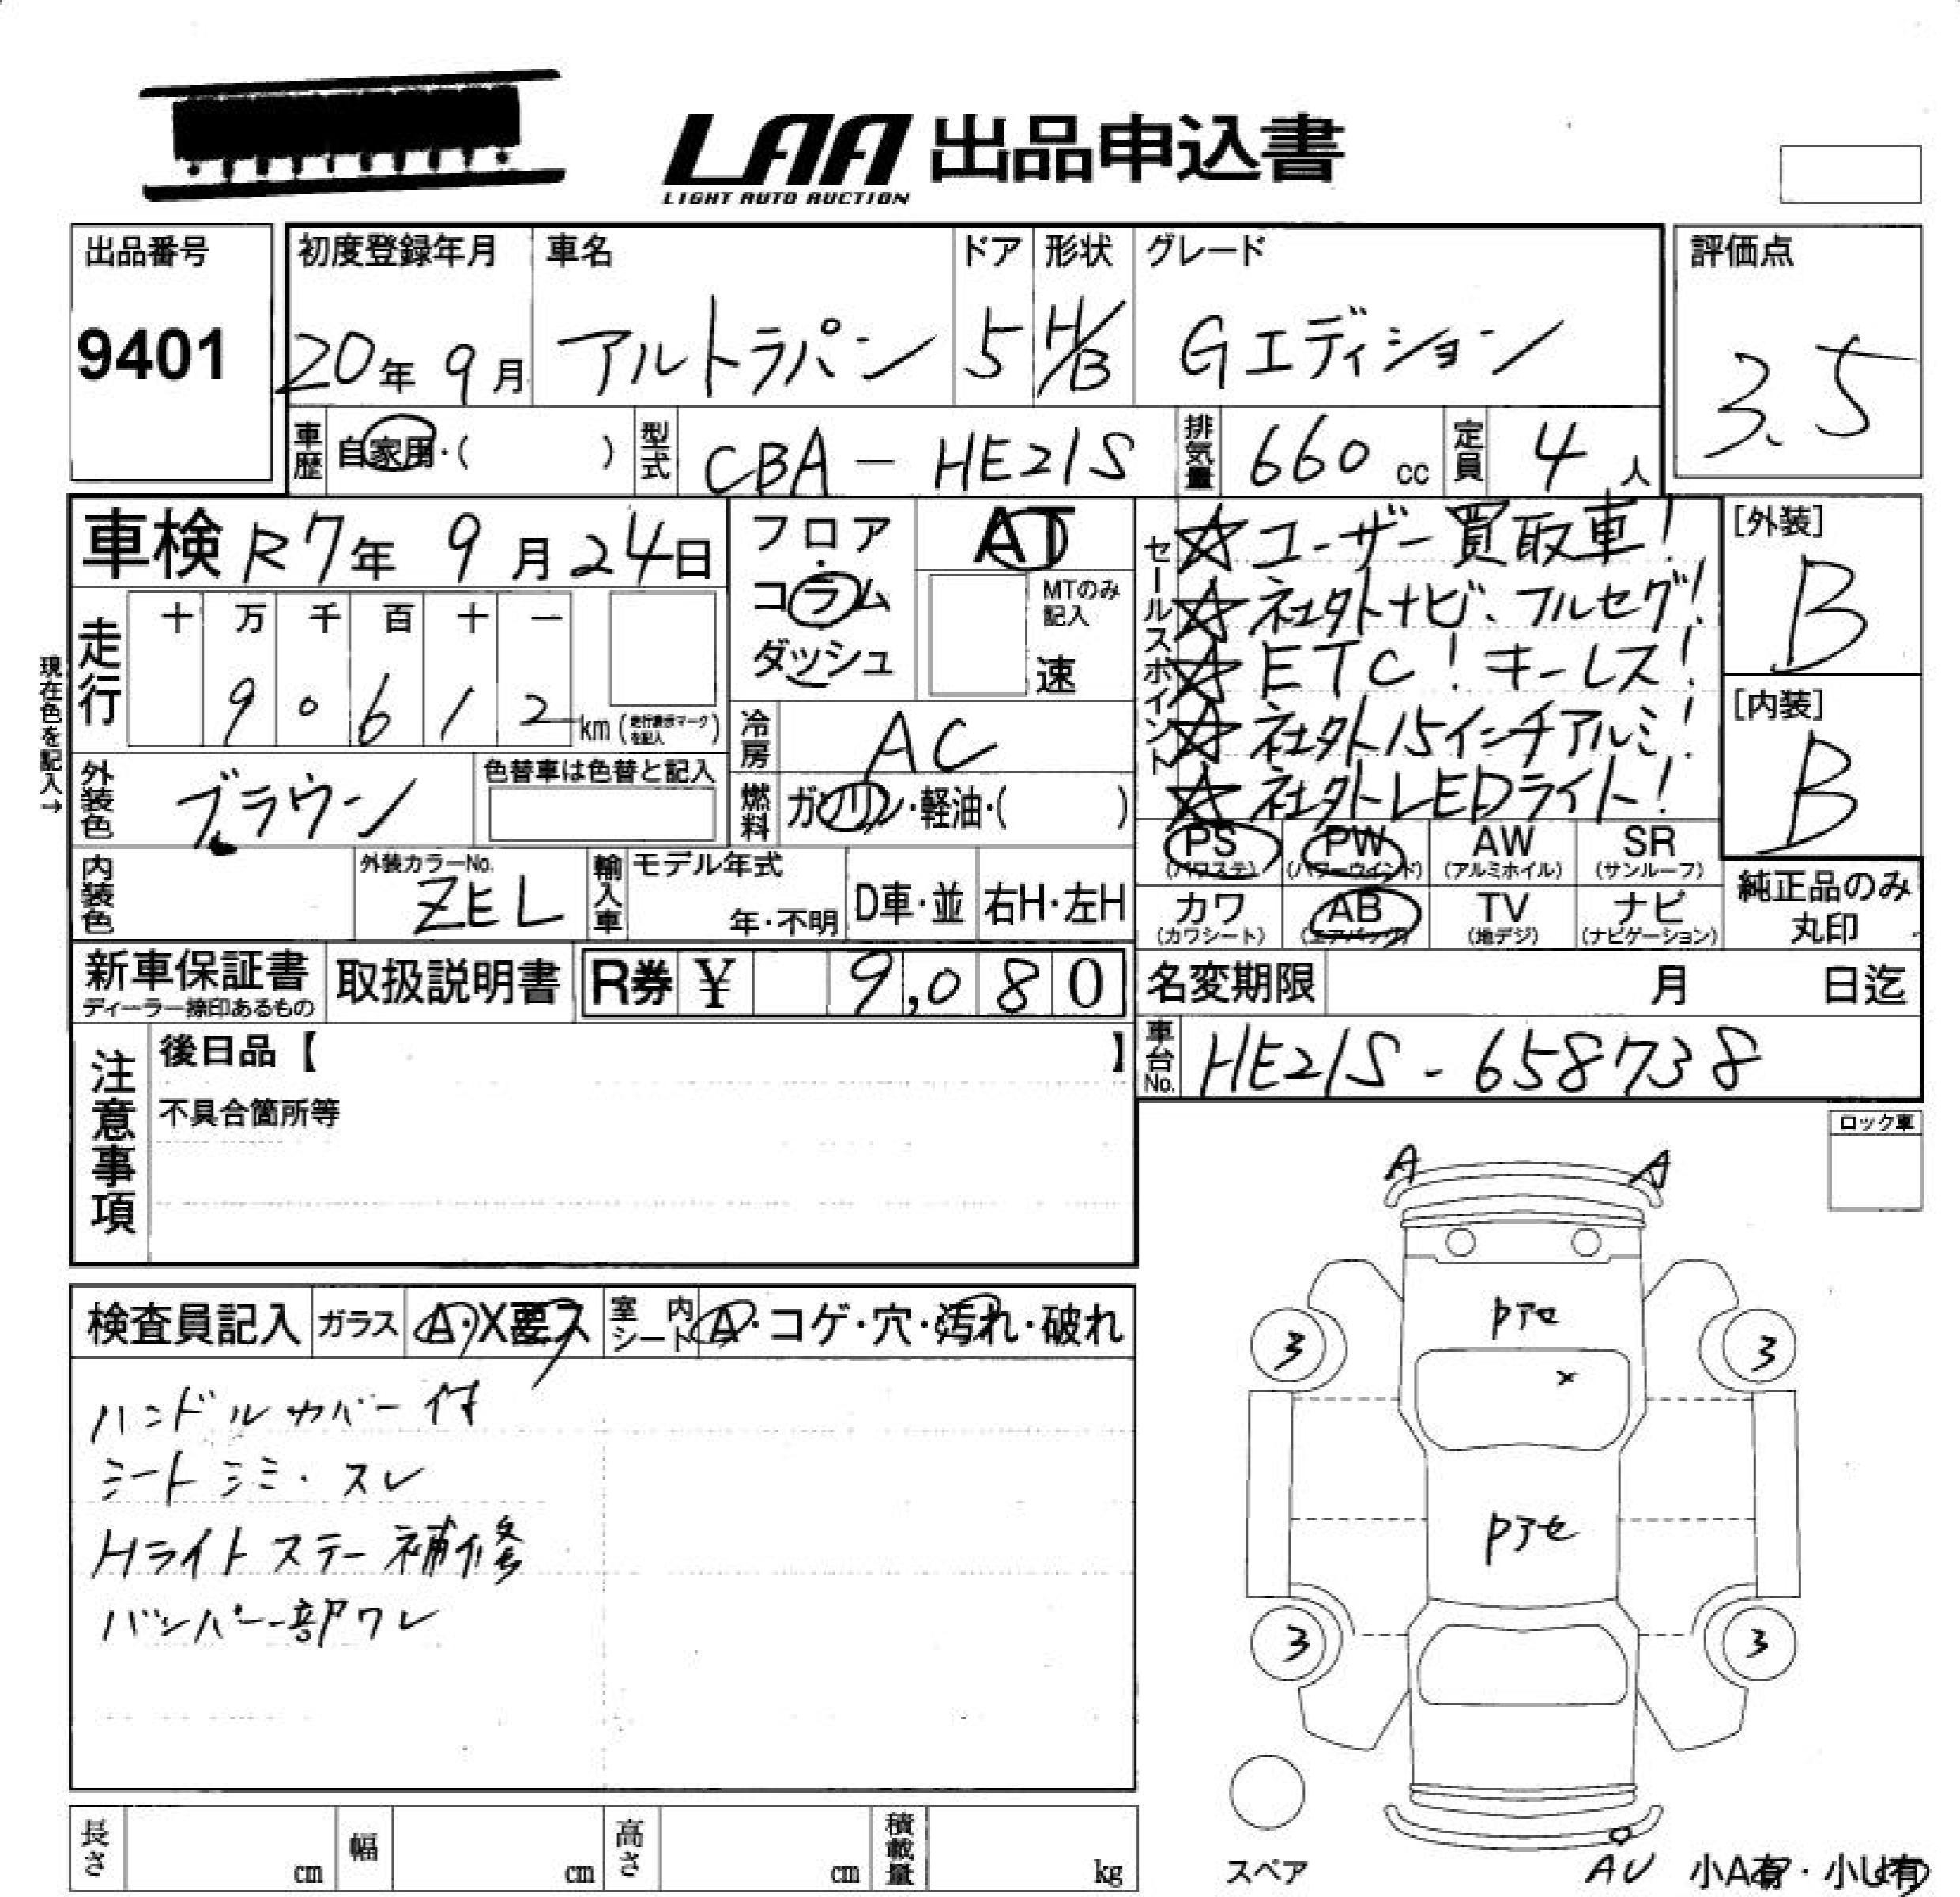 LAA 出品申込書
LIGHT AUTO AUCTION
出品番号
9401
初度登録年月
20年 9月
車名
アルトラパン
ドア
5
形状
H/B
グレード
Gエディション
評価点
3.5
車歴 自家用・( )
型式 CBA-HE21S
排気量 660 cc
定員 4 人
車検 R7年 9月 24日
フロア・コラム ダッシュ
AT
MTのみ記入
速
セールスポイント
☆ユーザー買取車!
☆社外ナビ、フルセグ!
☆ETC!キーレス!
☆社外15インチアルミ!
☆社外LEDライト!
[外装]
B
[内装]
B
現在色を記入→
走行
十 万 千 百 十 一
9 0 6 1 2 km (走行表示マークを記入)
冷房 AC
外装色 ブラウン
色替車は色替と記入
燃料 ガソリン・軽油・( )
PS (パワステ)
PW (パワーウインド)
AW (アルミホイル)
SR (サンルーフ)
カワ (カワシート)
AB (エアバック)
TV (地デジ)
ナビ (ナビゲーション)
純正品のみ丸印
内装色
外装カラーNo.
ZEL
輸入車 モデル年式
年・不明
D車・並
右H・左H
新車保証書
ディーラー捺印あるもの
取扱説明書
R券 ¥ 9,080
名変期限 月 日迄
車台No. HE21S-658738
注意事項
後日品【 】
不具合箇所等
ロック車
検査員記入 ガラス A・X要ス 室内シート A・コゲ・穴・汚れ・破れ
ハンドルカバー付
シートシミ・スレ
Hライトステー補修
バンパー一部ワレ
A A
Pアセ
3 3
×
Pアセ
3 3
スペア
AU
小A有・小U有
長さ cm 幅 cm 高さ cm 積載量 kg